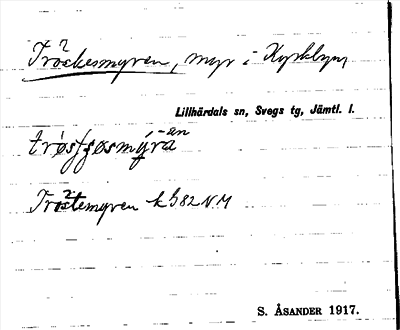 Tröckesmyren, myr i Kyrkbyn,
Lillhärdals sn, Svegs tg, Jämtl. l.
Tröstemyren k G82 NM
S. ÅSANDER 1917.